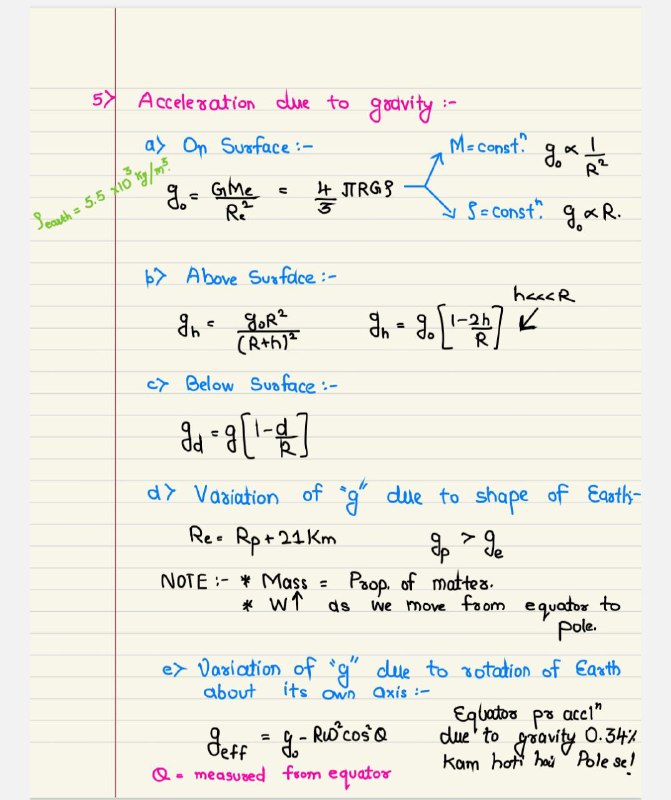 5> Acceleration due to gravity :-
a> On Surface :-
ρearth = 5.5 × 10³ kg/m³.
g₀ = GMe/Re² = 4/3 πRGρ
M = constⁿ. g₀ ∝ 1/R²
ρ = constⁿ. g₀ ∝ R.
b> Above Surface :-
gh = g₀R²/(R+h)² gh = g₀[1-2h/R] h<<<R
c> Below Surface :-
gd = g[1-d/R]
d> Variation of "g" due to shape of Earth-
Re = Rp + 21 Km gp > ge
NOTE :- * Mass = Prop. of matter.
* W↑ as we move from equator to
pole.
e> Variation of "g" due to rotation of Earth
about its own axis :-
geff = g₀ - Rω²cos²Q
Q = measured from equator
Equator pr acclⁿ
due to gravity 0.34%
kam hoti hai Pole se!